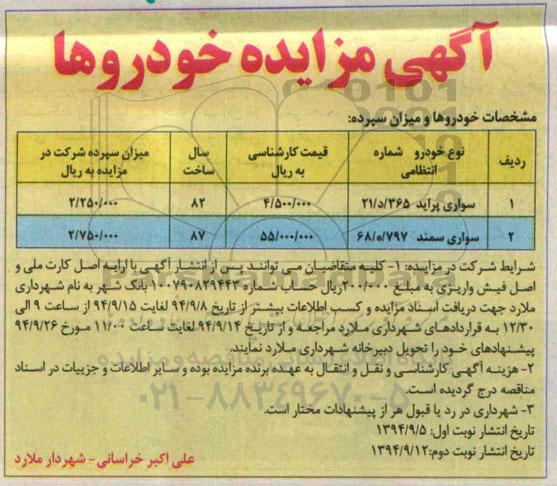 آگهی مزایده خودروها
مشخصات خودروها و میزان سپرده:
ردیف | نوع خودرو شماره انتظامی | قیمت کارشناسی به ریال | سال ساخت | میزان سپرده شرکت در مزایده به ریال
۱ | سواری پراید ۲۱/د/۳۶۵ | ۴/۵۰۰/۰۰۰ | ۸۲ | ۲/۲۵۰/۰۰۰
۲ | سواری سمند ۶۸/ه/۷۹۷ | ۵۵/۰۰۰/۰۰۰ | ۸۷ | ۲/۷۵۰/۰۰۰
شرایط شرکت در مزایده: ۱- کلیه متقاضیان می توانند پس از انتشار آگهی با ارایه اصل کارت ملی و
اصل فیش واریزی به مبلغ ۲۰۰/۰۰۰ ریال حساب شماره ۱۰۰۷۹۰۸۲۹۴۴۳ بانک شهر به نام شهرداری
ملارد جهت دریافت اسناد مزایده و کسب اطلاعات بیشتر از تاریخ ۹۴/۹/۸ لغایت ۹۴/۹/۱۵ از ساعت ۹ الی
۱۲/۳۰ به قراردادهای شهرداری ملارد مراجعه و از تاریخ ۹۴/۹/۱۴ لغایت ساعت ۱۱/۰۰ مورخ ۹۴/۹/۲۶
پیشنهادهای خود را تحویل دبیرخانه شهرداری ملارد نمایند.
۲- هزینه آگهی کارشناسی و نقل و انتقال به عهده برنده مزایده بوده و سایر اطلاعات و جزییات در اسناد
مناقصه درج گردیده است.
۳- شهرداری در رد یا قبول هر از پیشنهادات مختار است.
تاریخ انتشار نوبت اول: ۱۳۹۴/۹/۵
تاریخ انتشار نوبت دوم: ۱۳۹۴/۹/۱۲
علی اکبر خراسانی - شهردار ملارد
۰۲۱-۸۸۳۴۹۶۷۰-۵